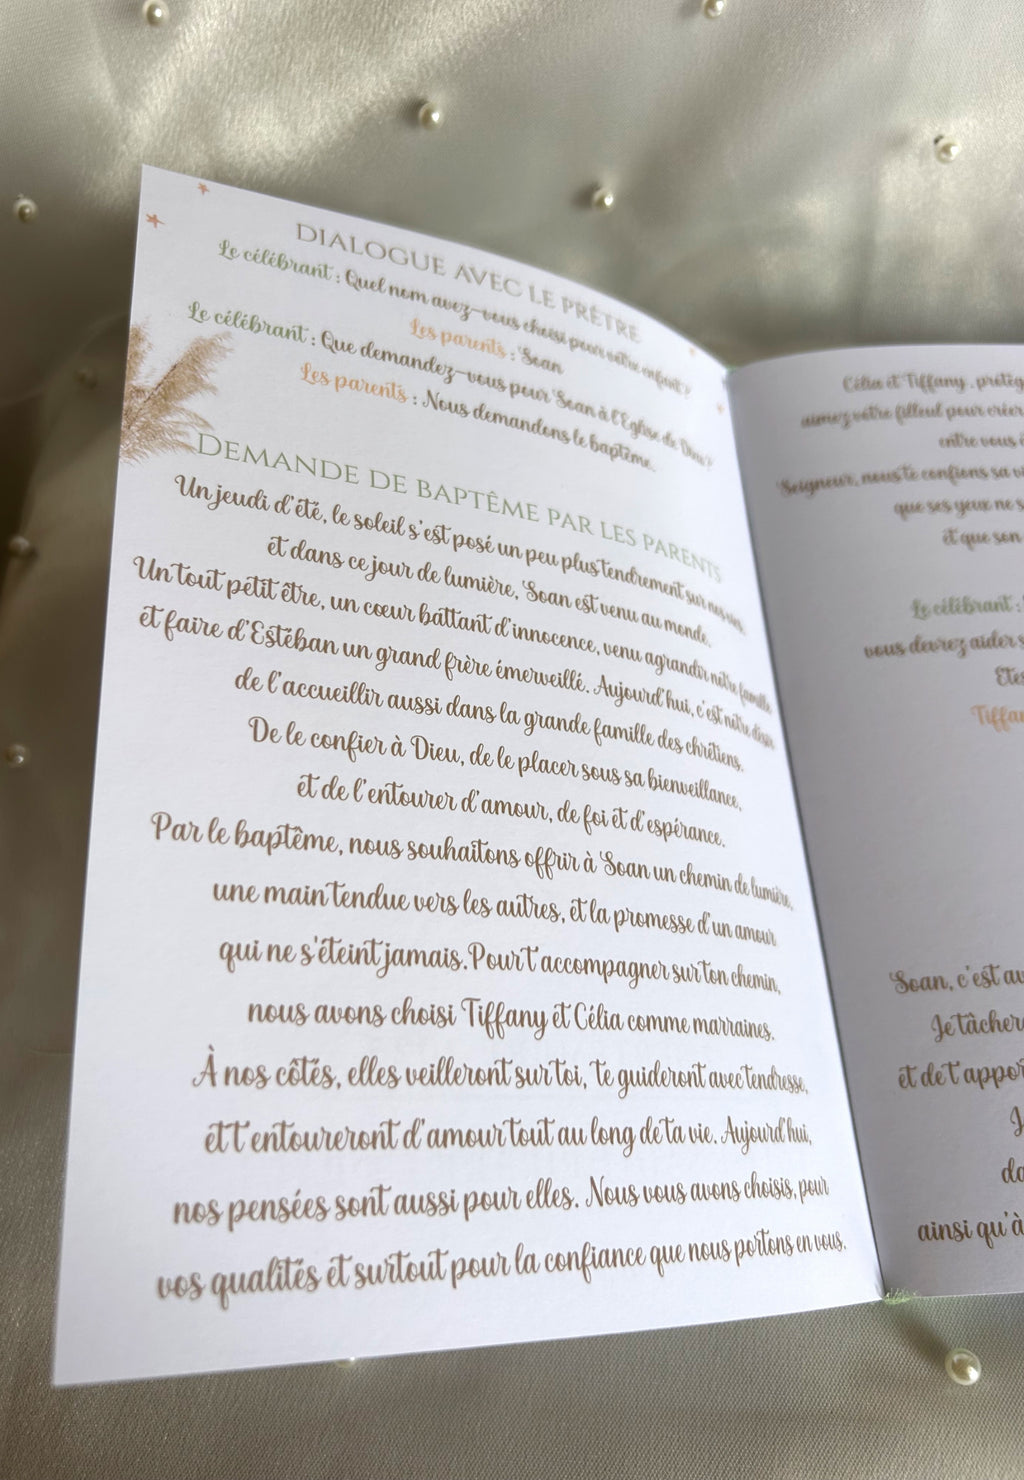 DIALOGUE AVEC LE PRÊTRE
Le célébrant : Quel nom avez-vous choisi pour votre enfant ?
Les parents : Soan
Le célébrant : Que demandez-vous pour Soan à l'Eglise de Dieu ?
Les parents : Nous demandons le baptême.
DEMANDE DE BAPTÊME PAR LES PARENTS
Un jeudi d'été, le soleil s'est posé un peu plus tendrement sur nos vies,
et dans ce jour de lumière, Soan est venu au monde.
Un tout petit être, un cœur battant d'innocence, venu agrandir nôtre famille
et faire d'Estéban un grand frère émerveillé. Aujourd'hui, c'est nôtre désir
de l'accueillir aussi dans la grande famille des chrétiens.
De le confier à Dieu, de le placer sous sa bienveillance,
et de l'entourer d'amour, de foi et d'espérance.
Par le baptême, nous souhaitons offrir à Soan un chemin de lumière,
une main tendue vers les autres, et la promesse d'un amour
qui ne s'éteint jamais. Pour t'accompagner sur ton chemin,
nous avons choisi Tiffany et Célia comme marraines.
À nos côtés, elles veilleront sur toi, te guideront avec tendresse,
et t'entoureront d'amour tout au long de ta vie. Aujourd'hui,
nos pensées sont aussi pour elles. Nous vous avons choisis, pour
vos qualités et surtout pour la confiance que nous portons en vous.
Célia et Tiffany, protég
aimez vôtre filleul pour créer
entre vous
Seigneur, nous te confions sa vi
que ses yeux ne s
et que son
Le célébrant :
vous devrez aider s
Etes
Tiffan
Soan, c'est au
Je tâcher
et de t'appor
J
da
ainsi qu'à